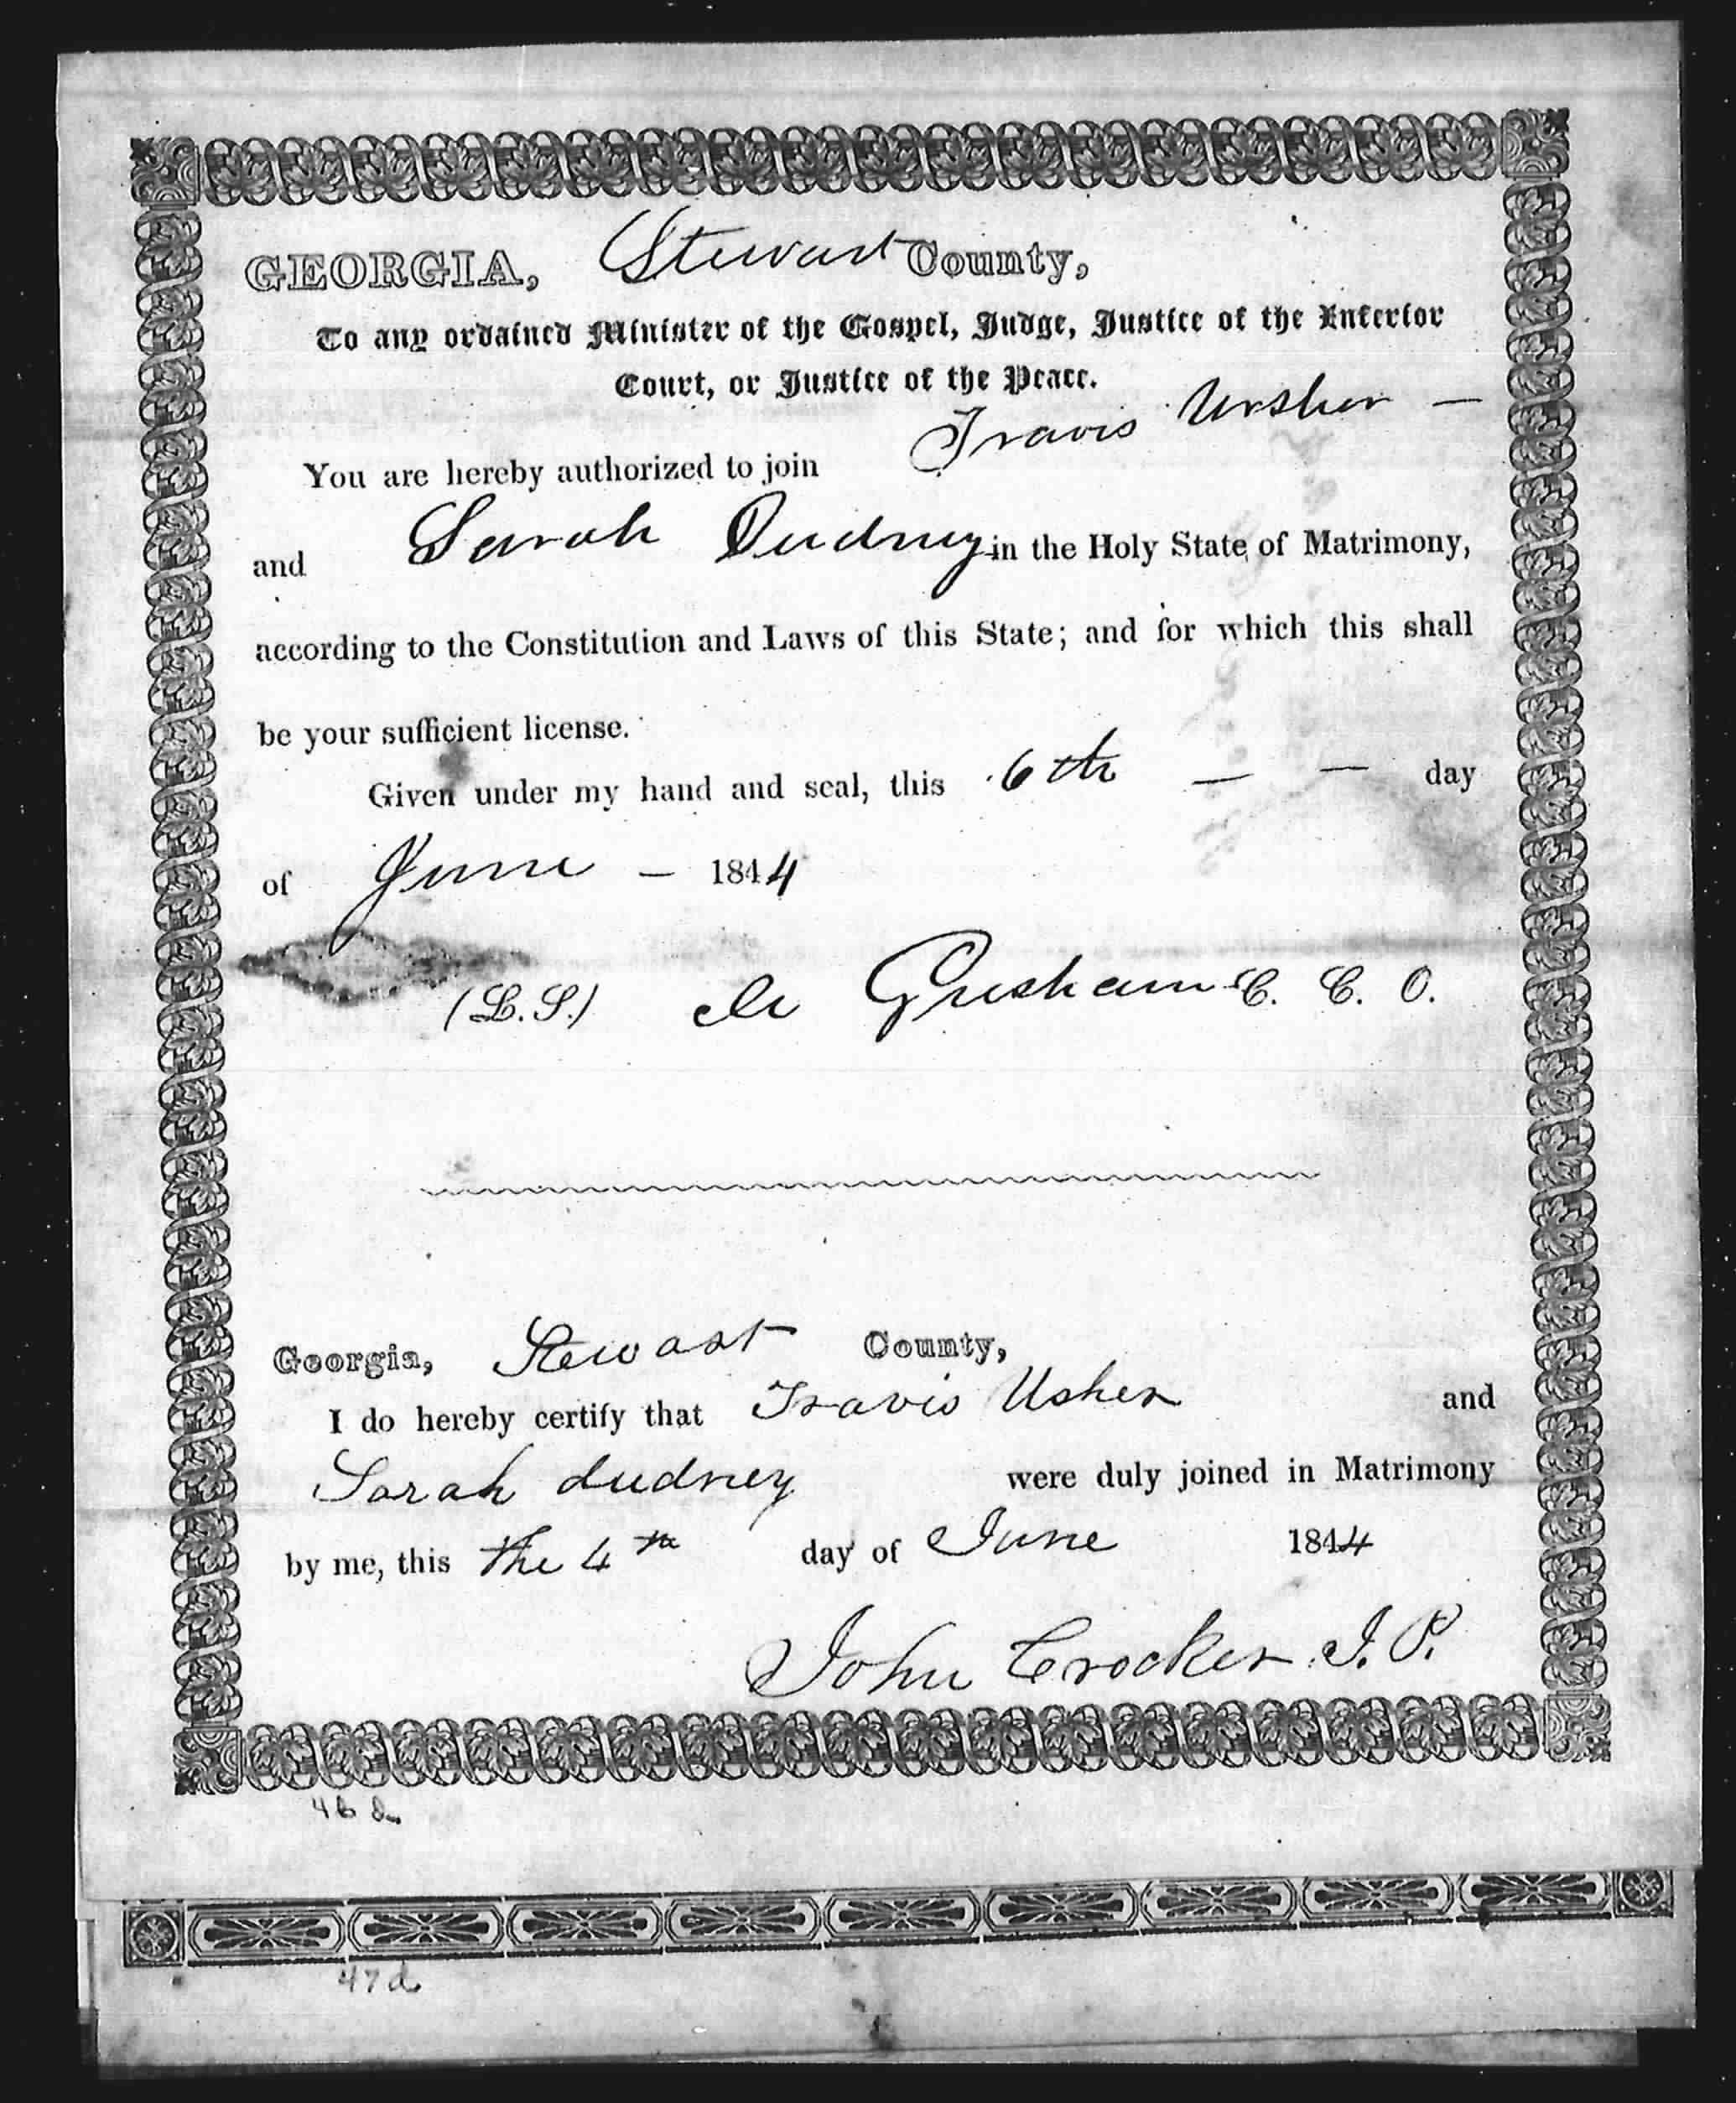 GEORGIA, Stewart County,
To any ordained Minister of the Gospel, Judge, Justice of the Inferior
Court, or Justice of the Peace.
You are hereby authorized to join Travis Ursher —
and Sarah Dudney in the Holy State of Matrimony,
according to the Constitution and Laws of this State; and for which this shall
be your sufficient license.
Given under my hand and seal, this 6th — — day
of June — 1844
(L.S.) M Gresham C. C. O.
Georgia, Stewart County,
I do hereby certify that Travis Usher and
Sarah dudney were duly joined in Matrimony
by me, this the 4th day of June 1844
John Crocker J. P.
46 d
47 d